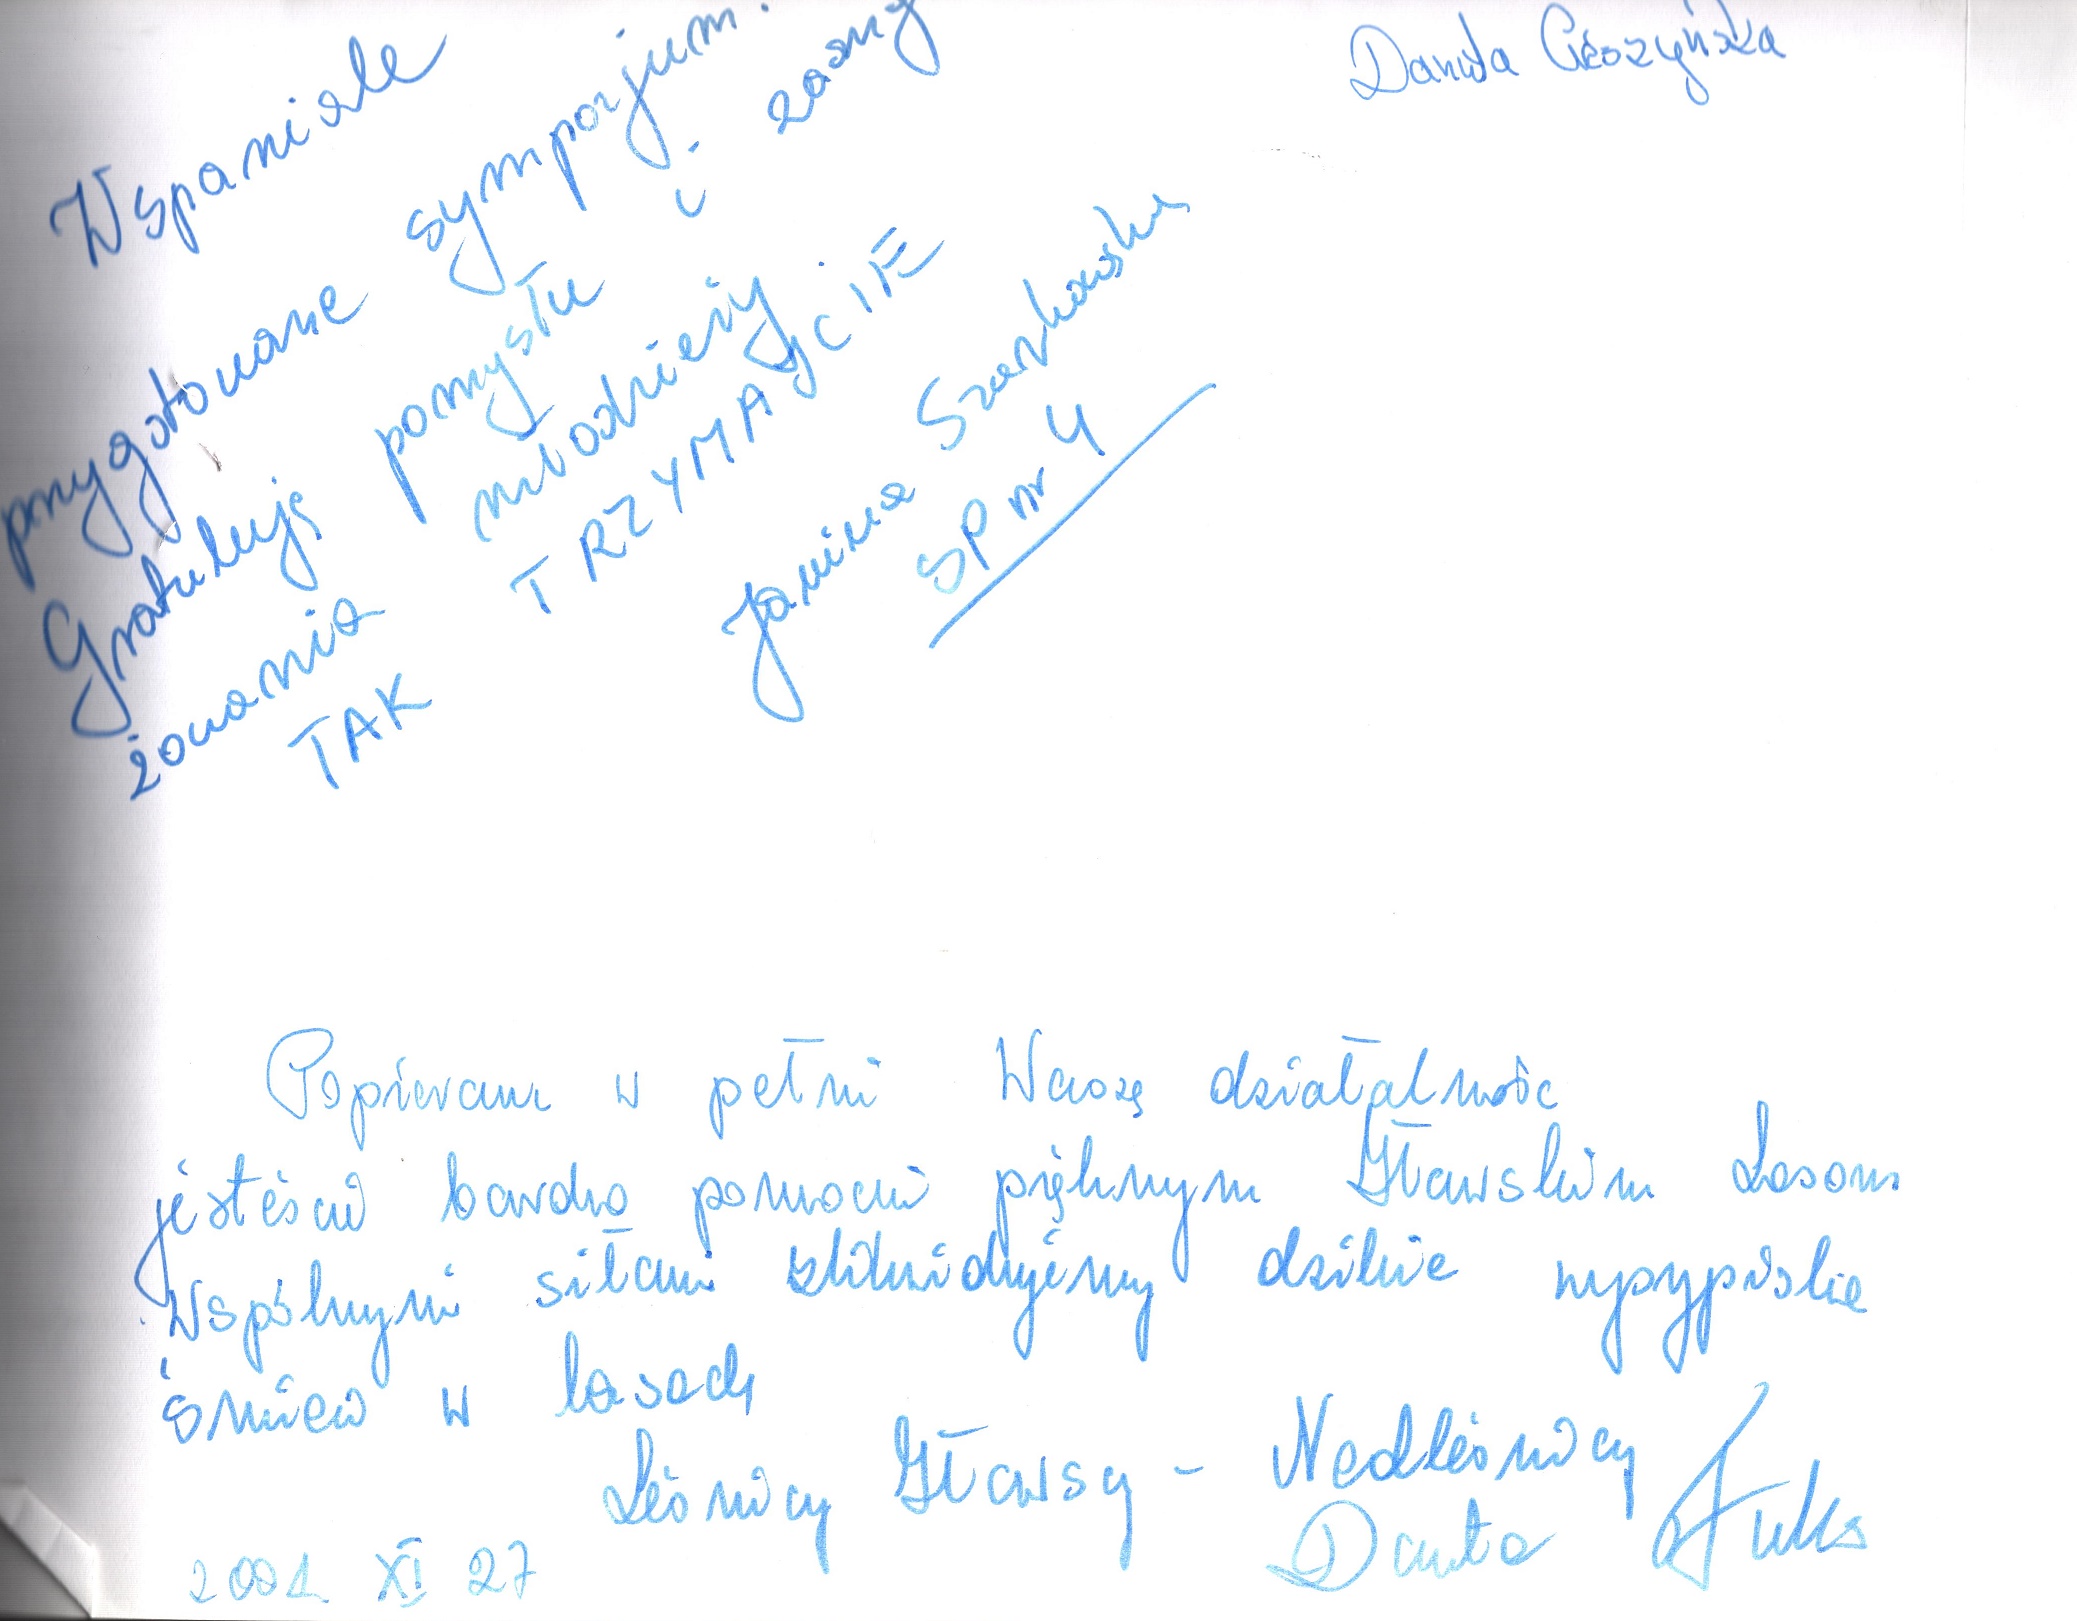 Wspaniale
przygotowane sympozjum.
Gratuluję pomysłu i zaanga-
żowania młodzieży
TAK TRZYMAJCIE
Janina Szarkowska
SP nr 4
Danuta
Popieram w pełni Waszą działalność
jesteście bardzo pomocni pięknym Iławskim Lasom
Wspólnymi siłami zlikwidujemy dzikie wysypiska
śmieci w lasach
Leśnicy Iławscy - Nadleśnicy
Danuta
2001 XI 27